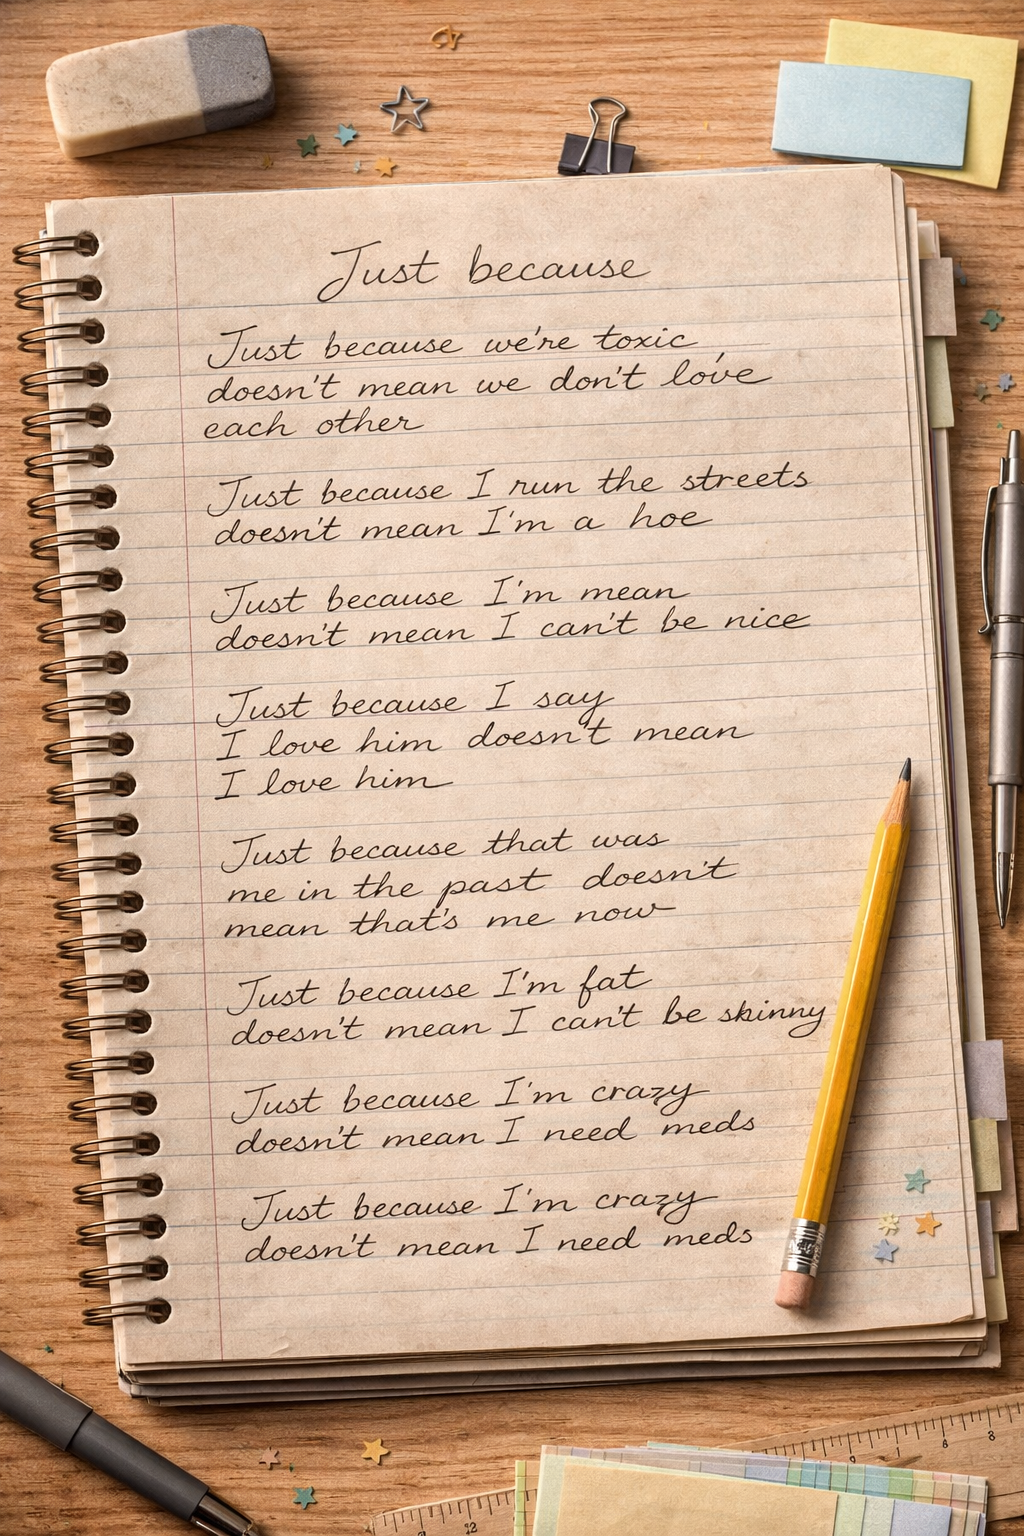 Just because
Just because we're toxic
doesn't mean we don't love
each other
Just because I run the streets
doesn't mean I'm a hoe
Just because I'm mean
doesn't mean I can't be nice
Just because I say
I love him doesn't mean
I love him
Just because that was
me in the past doesn't
mean that's me now
Just because I'm fat
doesn't mean I can't be skinny
Just because I'm crazy
doesn't mean I need meds
Just because I'm crazy
doesn't mean I need meds